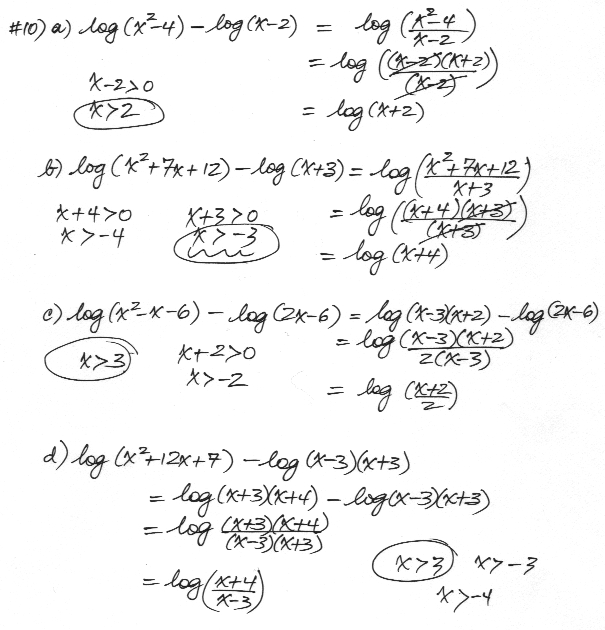 #10) a) log(x²-4) - log(x-2) = log(x²-4/x-2)
= log((x-2)(x+2)/(x-2))
x-2>0
x>2
= log(x+2)
b) log(x²+7x+12) - log(x+3) = log(x²+7x+12/x+3)
x+4>0 x+3>0 = log((x+4)(x+3)/(x+3))
x>-4 x>-3
= log(x+4)
c) log(x²-x-6) - log(2x-6) = log(x-3)(x+2) - log(2x-6)
x>3 x+2>0 = log (x-3)(x+2)/2(x-3)
x>-2
= log (x+2/2)
d) log(x²+12x+7) - log(x-3)(x+3)
= log(x+3)(x+4) - log(x-3)(x+3)
= log (x+3)(x+4)/(x-3)(x+3)
x>3 x>-3
= log(x+4/x-3)
x>-4